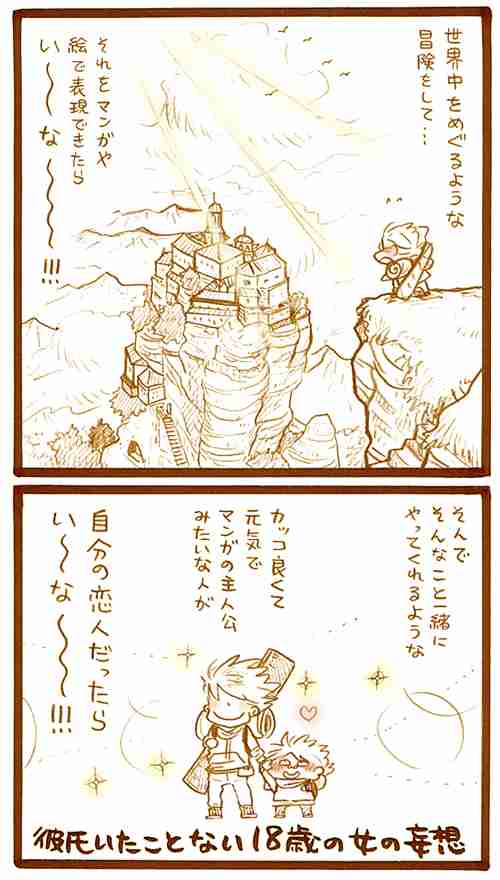 世界中をめぐるような
冒険をして…
それをマンガや
絵で表現できたら
い～～な～～～～!!!
そんで
そんなこと一緒に
やってくれるような
カッコ良くて
元気で
マンガの主人公
みたいな人が
自分の恋人だったら
い～～な～～～!!!
彼氏いたことない18歳の女の妄想